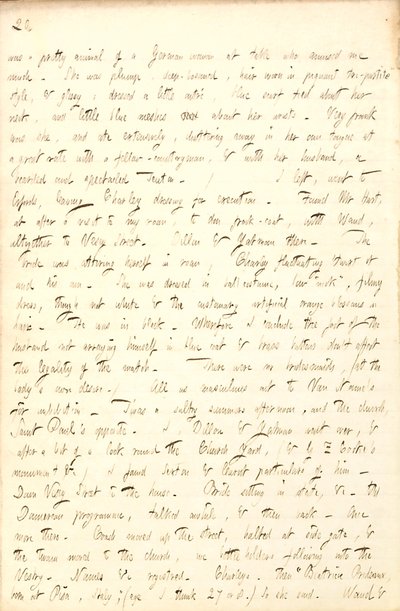 22
was a pretty animal of a German woman at table who amused me
much. She was plump, deep-bosomed, hair worn in piquant
style, & glossy; dressed a little outre, blue scarf tied about her
neck, and little blue meshes about her wrists. Very prank
was she, and ate extensively, chattering away in her own tongue at
a great rate with a fellow-countryman, & with her husband, a
bearded and spectacled Teuton. / I left, went to
Edfords, leaving Charley dressing for execution. Found Mr Hart,
at after a visit to my room, to don frock-coat, with Waud,
altogether to Vesey Street. Dillon & Yatman there. The
bride was attiring herself in room Charley fluctuating 'twixt it
and his own. She was dressed in ball costume, "low neck", filmy
dress, though not white & the customary artificial orange blossoms in
hair. He was in black. Wherefore I conclude the fact of the
husband not arraying himself in blue coat & brass buttons don't affect
the legality of the match. There were no bridesmaids, (at the
lady's own desire.) All us masculines out to Van
for imbibition. 'Twas a sultry summers afternoon, and the church,
Saint Paul's opposite. I, Dillon & Yatman went over, &
after a bit of a look round the Church Yard, (& G F Cooke's
monument &c) I found Sexton & learnt particulars of him.
Down Vesey Street to the house. Bride sitting in state, &c. The
programme, talked awhile, & then back. Once
more there. Coach moved up the street, halted at side gate, &
the twain moved to the church, we bottle-holders following into the
Vestry. Names &c registered. Charley's. Then "Beatrice
born at Pisa, Italy," (age I think 27 or 8.) So she said. Waud &